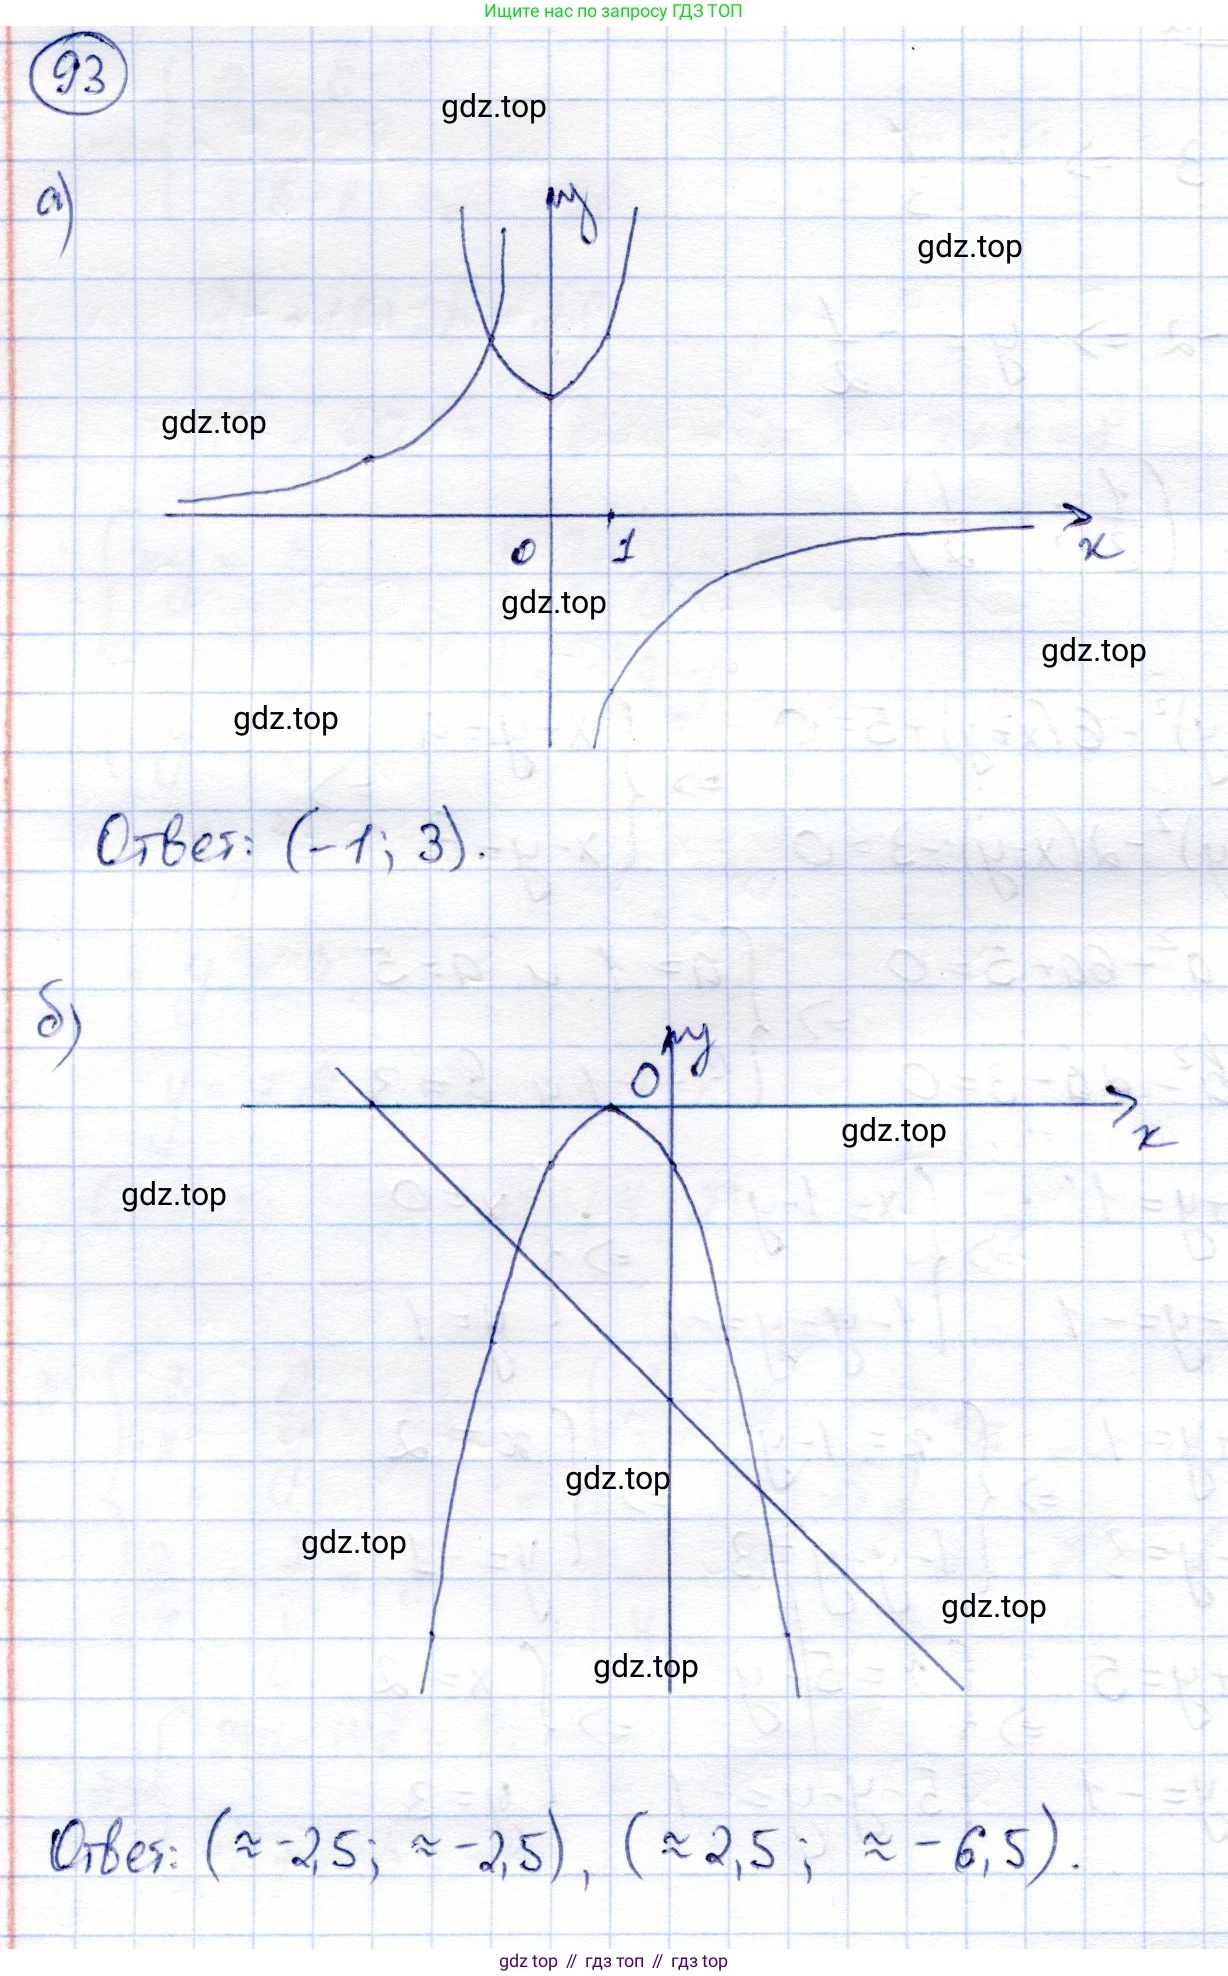 Ищите нас по запросу ГДЗ ТОП
93
gdz.top
а)
y
gdz.top
gdz.top
0 1 x
gdz.top
gdz.top
gdz.top
Ответ: (-1; 3).
б)
y
0
gdz.top
x
gdz.top
gdz.top
gdz.top
gdz.top
gdz.top
Ответ: (≈-2,5; ≈-2,5), (≈2,5; ≈-6,5).
gdz top // гдз топ // gdz top